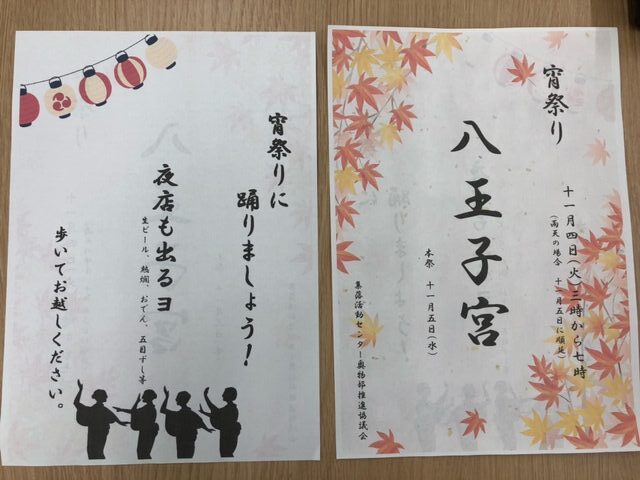 宵祭り
八王子宮
十一月四日(火)三時から七時
(雨天の場合 十一月五日に順延)
本祭 十一月五日(水)
集落活動センター奥物部推進協議会
宵祭りに
踊りましょう!
夜店も出るヨ
生ビール、熱燗、おでん、五目ずし等
歩いてお越しください。